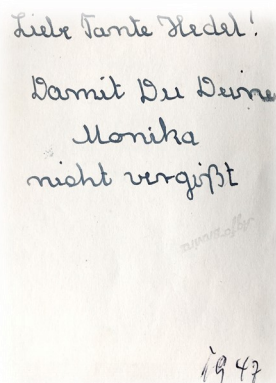 Liebe Tante Hedel!
Damit Du Deine
Monika
nicht vergißt
1947